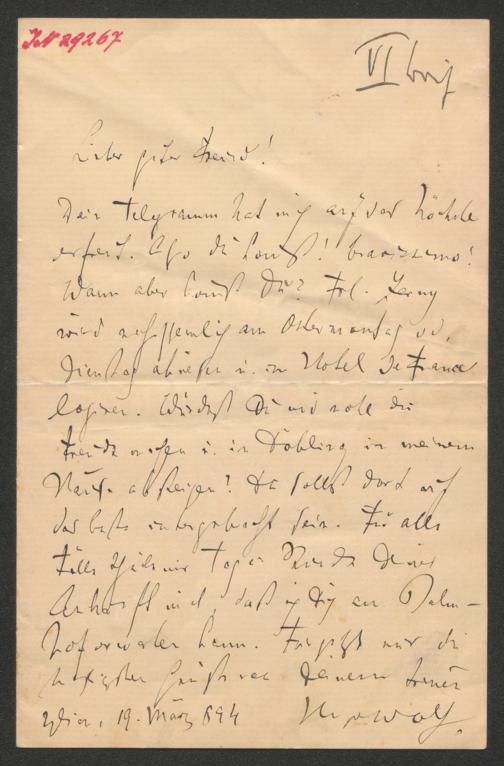 IN 29267
VI
Lieber guter Freund!
Dein Telegramm hat mich auf das höchste
erfreut. Also du kommst! bravissimo!
Wann aber kommst Du? Frl. Zerny
wird wahrscheinlich am Ostermontag od.
Dienstag abreisen u. im Hotel de France
logiren. Würdest Du mir wohl die
Freude machen u. in Döbling in meinem
Hause absteigen? Du sollst dort auf
das beste untergebracht sein. Für alle
Fälle theile mir Tag u. Stunde Deiner
Ankunft mit, daß ich Dich am Bahn-
hof erwarten kann. Für jetzt nur die
herzlichsten Grüße von Deinem treuen
Wien, 19. März 894 Hugo Wolf.